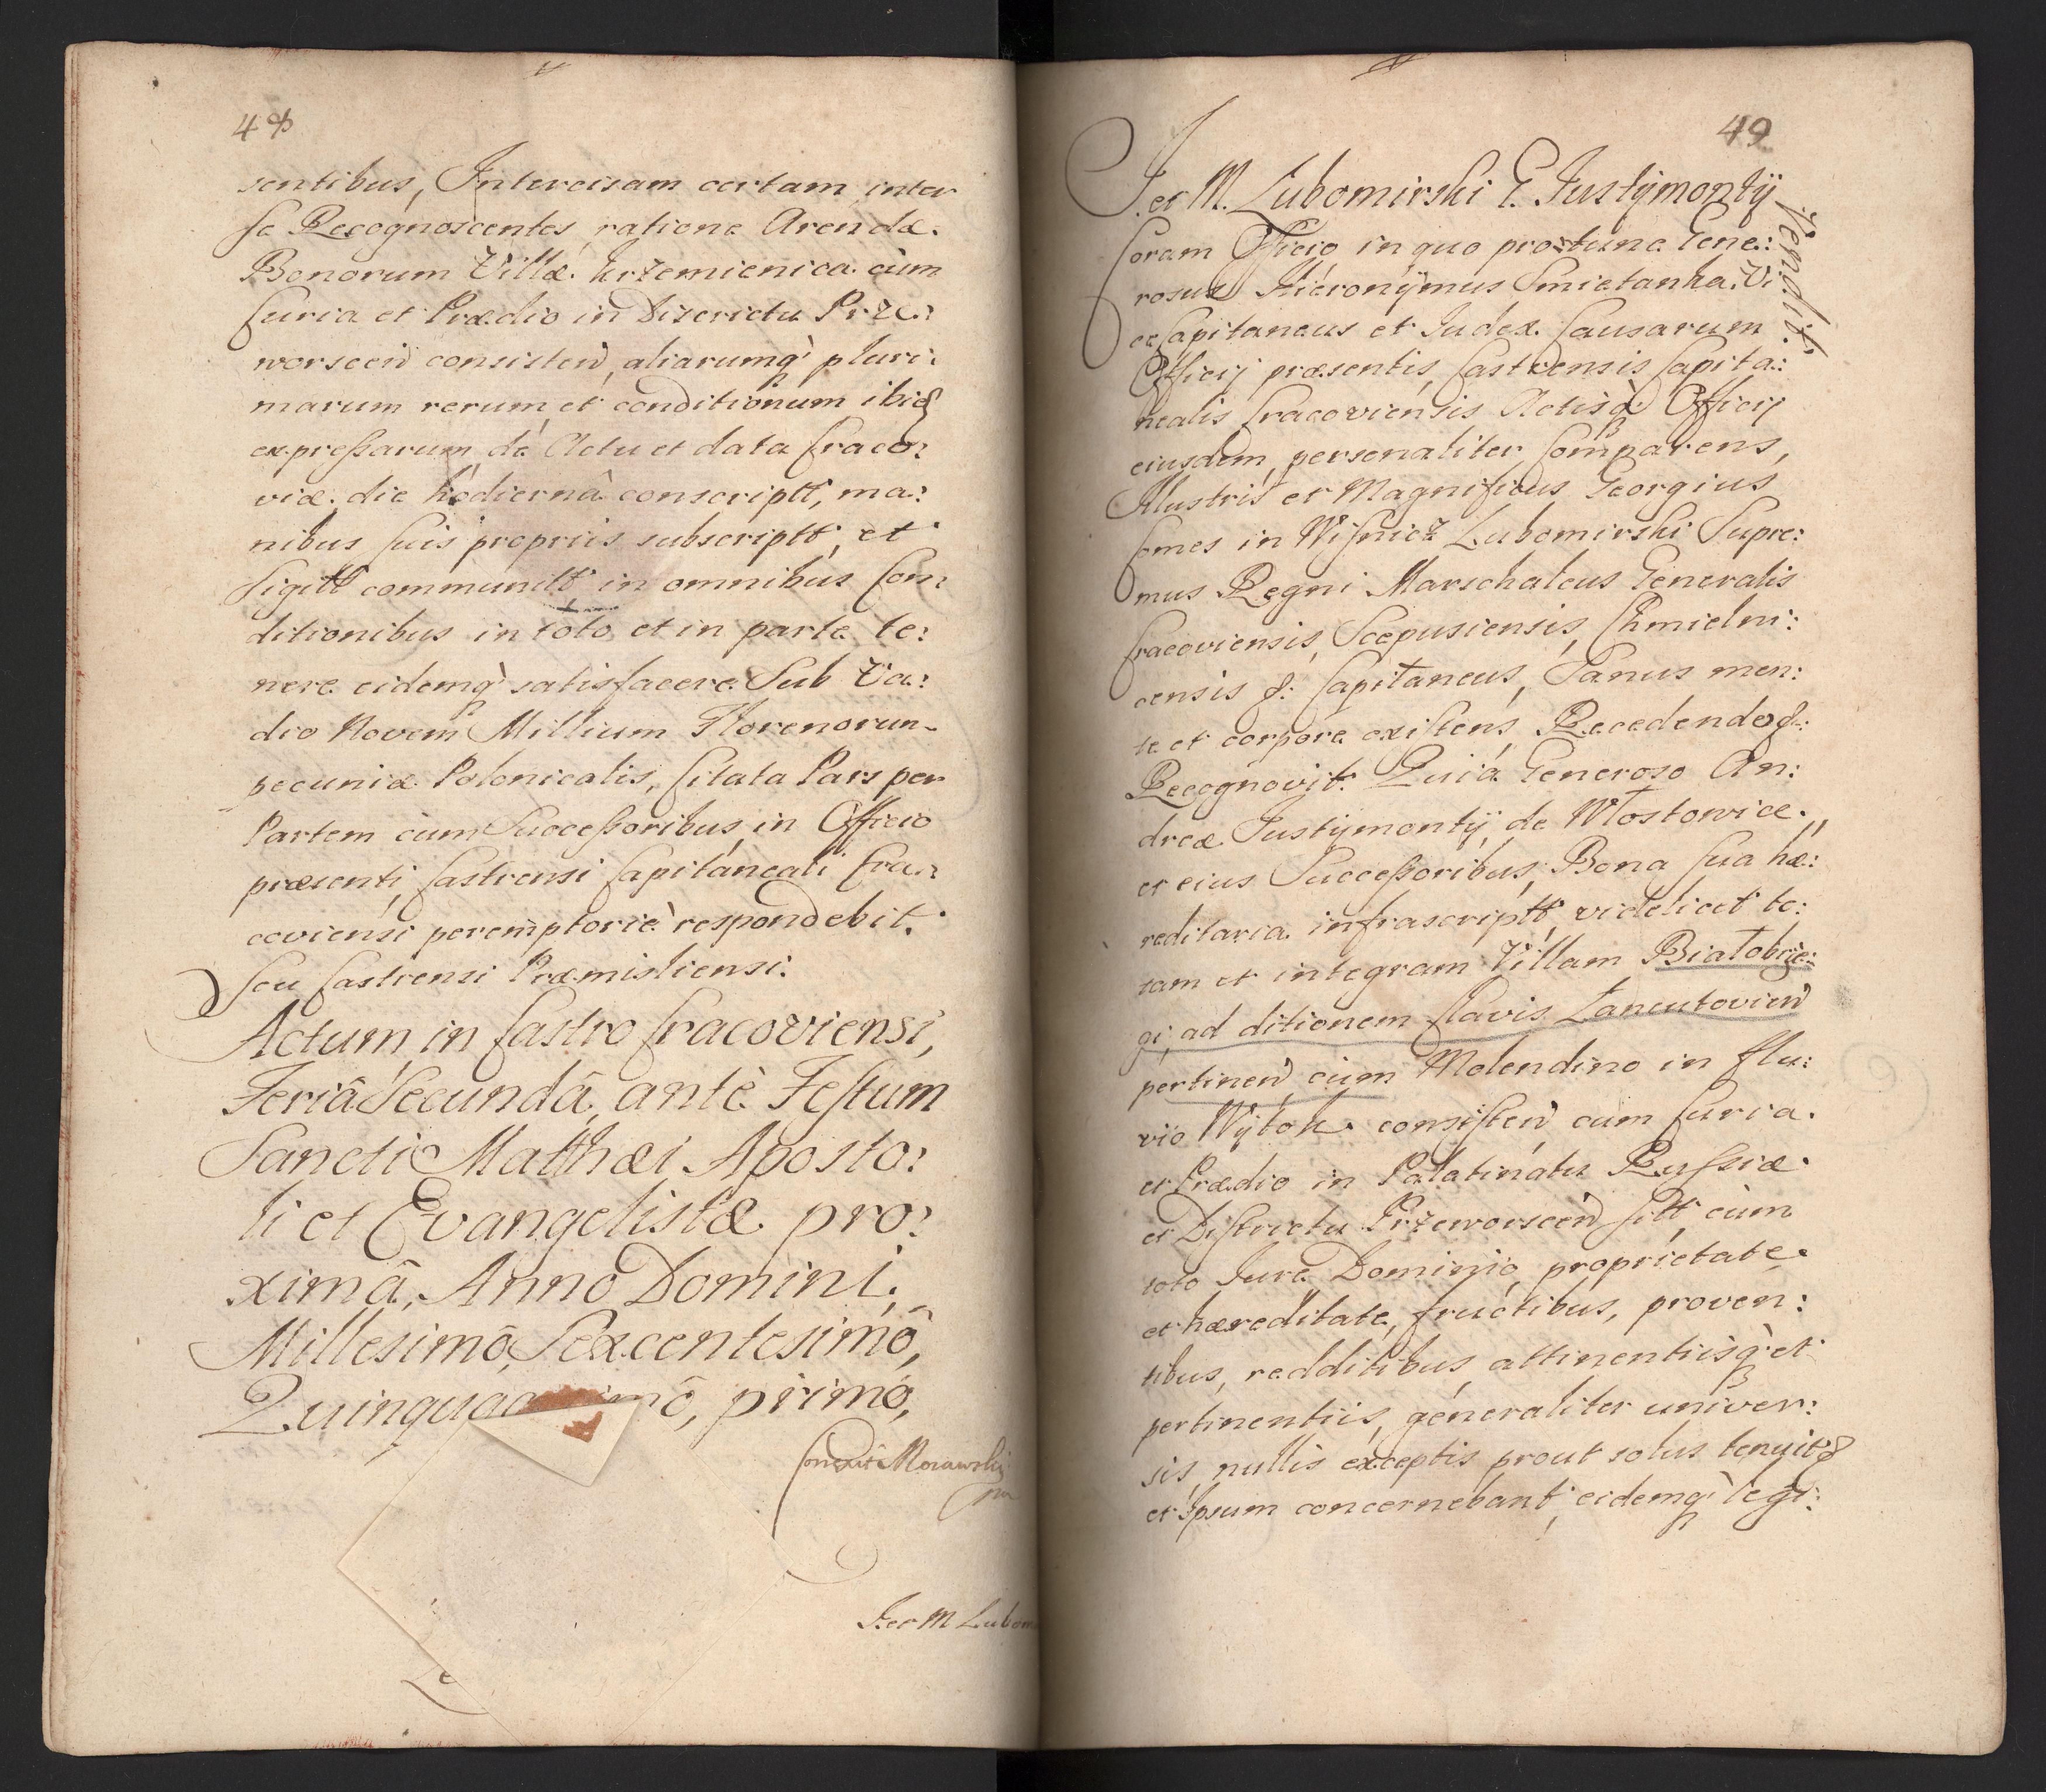 48
sentibus, Intercisam certam inter
se Recognoscentes ratione Arendæ
Bonorum Villæ Krzemienica cùm
Curia et Prædio in Districtu Prze:
worscen consisten, aliarumq pluri:
marum rerum et conditionum ibid
expreßarum de Actu et data Craco:
viæ die hodiernâ conscriptt, ma:
nibus suis propriis subscriptt, et
Sigitt communitt in omnibus Con:
ditionibus in toto et in parte te:
nere eidemq satisfacere Sub Va:
dio Novem Millium Florenorum
pecuniæ Polonicalis, Citata Pars per
Partem cum Succeßoribus in Officio
præsenti Castrensi Capitaneali Cra:
coviensi peremptorie respondebit.
Seu Castrensi Præmisliensi.
Actum in Castro Cracoviensi,
Feriâ Secundâ ante Festum
Sancti Matthæi Aposto:
li et Evangelistæ pro:
ximâ, Anno Domini,
Millesimô, Sexcentesimô,
primô,
Morawski
mp
Jer M Lubom
49
J. et M. Lubomirski G. Justÿmontÿ
Vendit.
Coram Officio in quo protunc Gene:
rosus Hieronÿmus Smietanka Vi
ce Capitaneus et Judex Causarum
Officij præsentis Castrensis Capita:
nealis Cracoviensis Actisq Officij
eiusdem, personaliter Comparens,
Illustris et Magnificus Georgius
Comes in Wisnicz Lubomirski Supre:
mus Regni Marschalcus Generalis
Cracoviensis, Scepusiensis, Chmielni:
censis &: Capitaneus, Sanus men:
te et corpore existens, Recedendo &:
Recognovit. Quia Generoso An:
dreæ Justÿmontÿ de Włostowice
et eius Succeßoribus, Bona sua hæ:
reditaria infrascriptt, videlicet to:
tam et integram Villam Białobrze:
gi, ad ditionem Clavis Łancutovien
pertinen cum Molendino in flu:
vio Wÿłok consisten cum Curia
et Prædio in Palatinatu Russiæ
et Districtu Przeworscen sitt cùm
toto Jure Dominio, proprietate
et hæreditate, fructibus, proven:
tibus, redditibus attinentiisq et
pertinentiis, generaliter univer:
sis, nullis exceptis prout solus tenuit &
et Ipsum concernebant, eidemq legi: